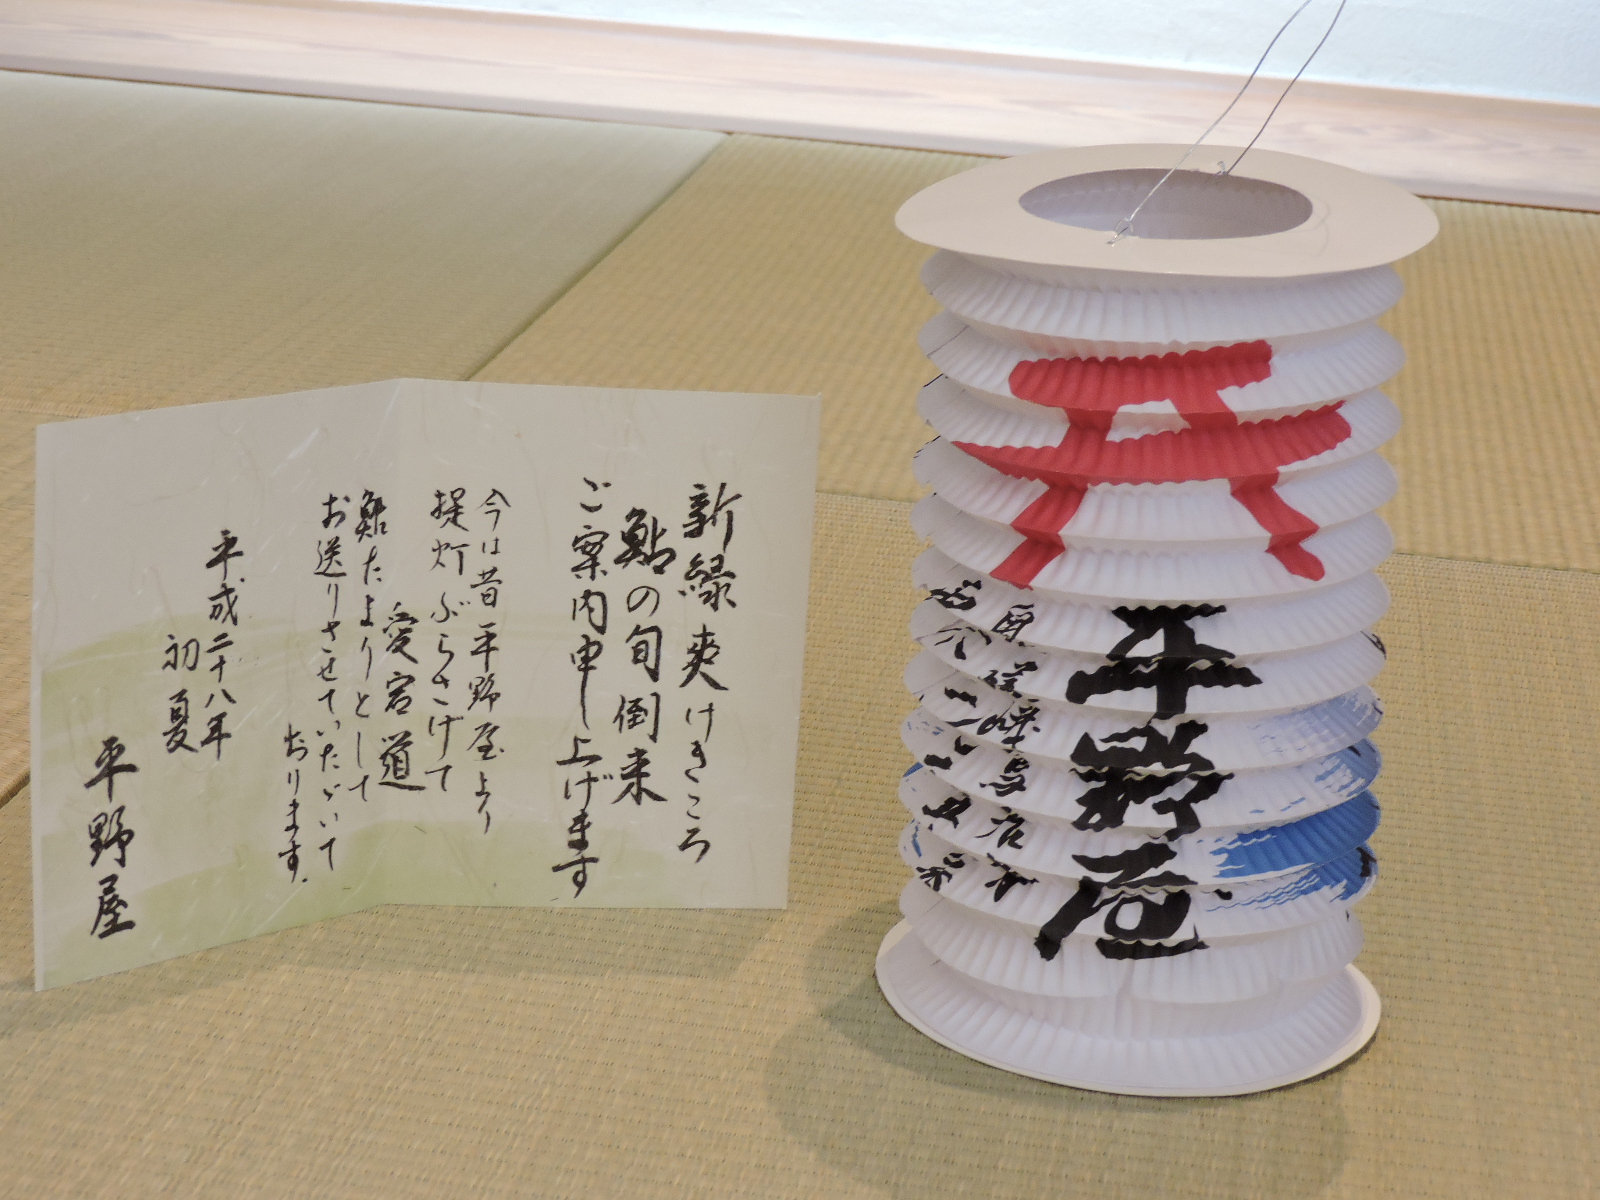 新緑爽けきころ
鮎の旬到来
ご案内申し上げます
今は昔平野屋より
提灯ぶらさげて
愛宕道
鮎たよりとして
お送りさせていたゞいて
おります。
平成二十八年
初夏
平野屋
平野屋